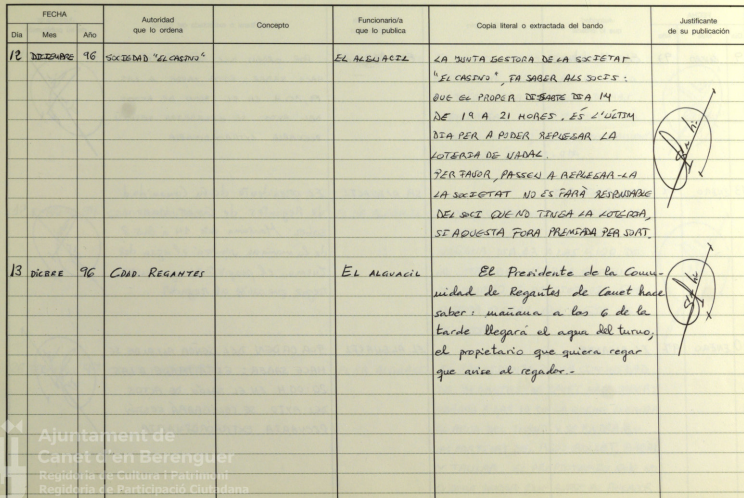 FECHA
Autoridad
que lo ordena
Concepto
Funcionario/a
que lo publica
Copia literal o extractada del bando
Justificante
de su publicación
Día
Mes
Año
12 DICIEMBRE 96 SOCIEDAD "EL CASINO" EL ALGUACIL
LA JUNTA GESTORA DE LA SOCIETAT
"EL CASINO", FA SABER ALS SOCIS:
QUE EL PROPER DISSABTE DIA 14
DE 19 A 21 HORES, ÉS L'ÚLTIM
DIA PER A PODER REPLEGAR LA
LOTERIA DE NADAL.
PER FAVOR, PASSEN A REPLEGAR-LA
LA SOCIETAT NO ES FARÀ RESPONSABLE
DEL SOCI QUE NO TINGA LA LOTERIA,
SI AQUESTA FORA PREMIADA PER SORT.
13 DICBRE 96 CDAD. REGANTES EL ALGUACIL
El Presidente de la Comu-
nidad de Regantes de Canet hace
saber: mañana a las 6 de la
tarde llegará el agua del turno,
el propietario que quiera regar
que avise al regador.-
Ajuntament de
Canet d'en Berenguer
Regidoria de Cultura i Patrimoni
Regidoria de Participació Ciutadana